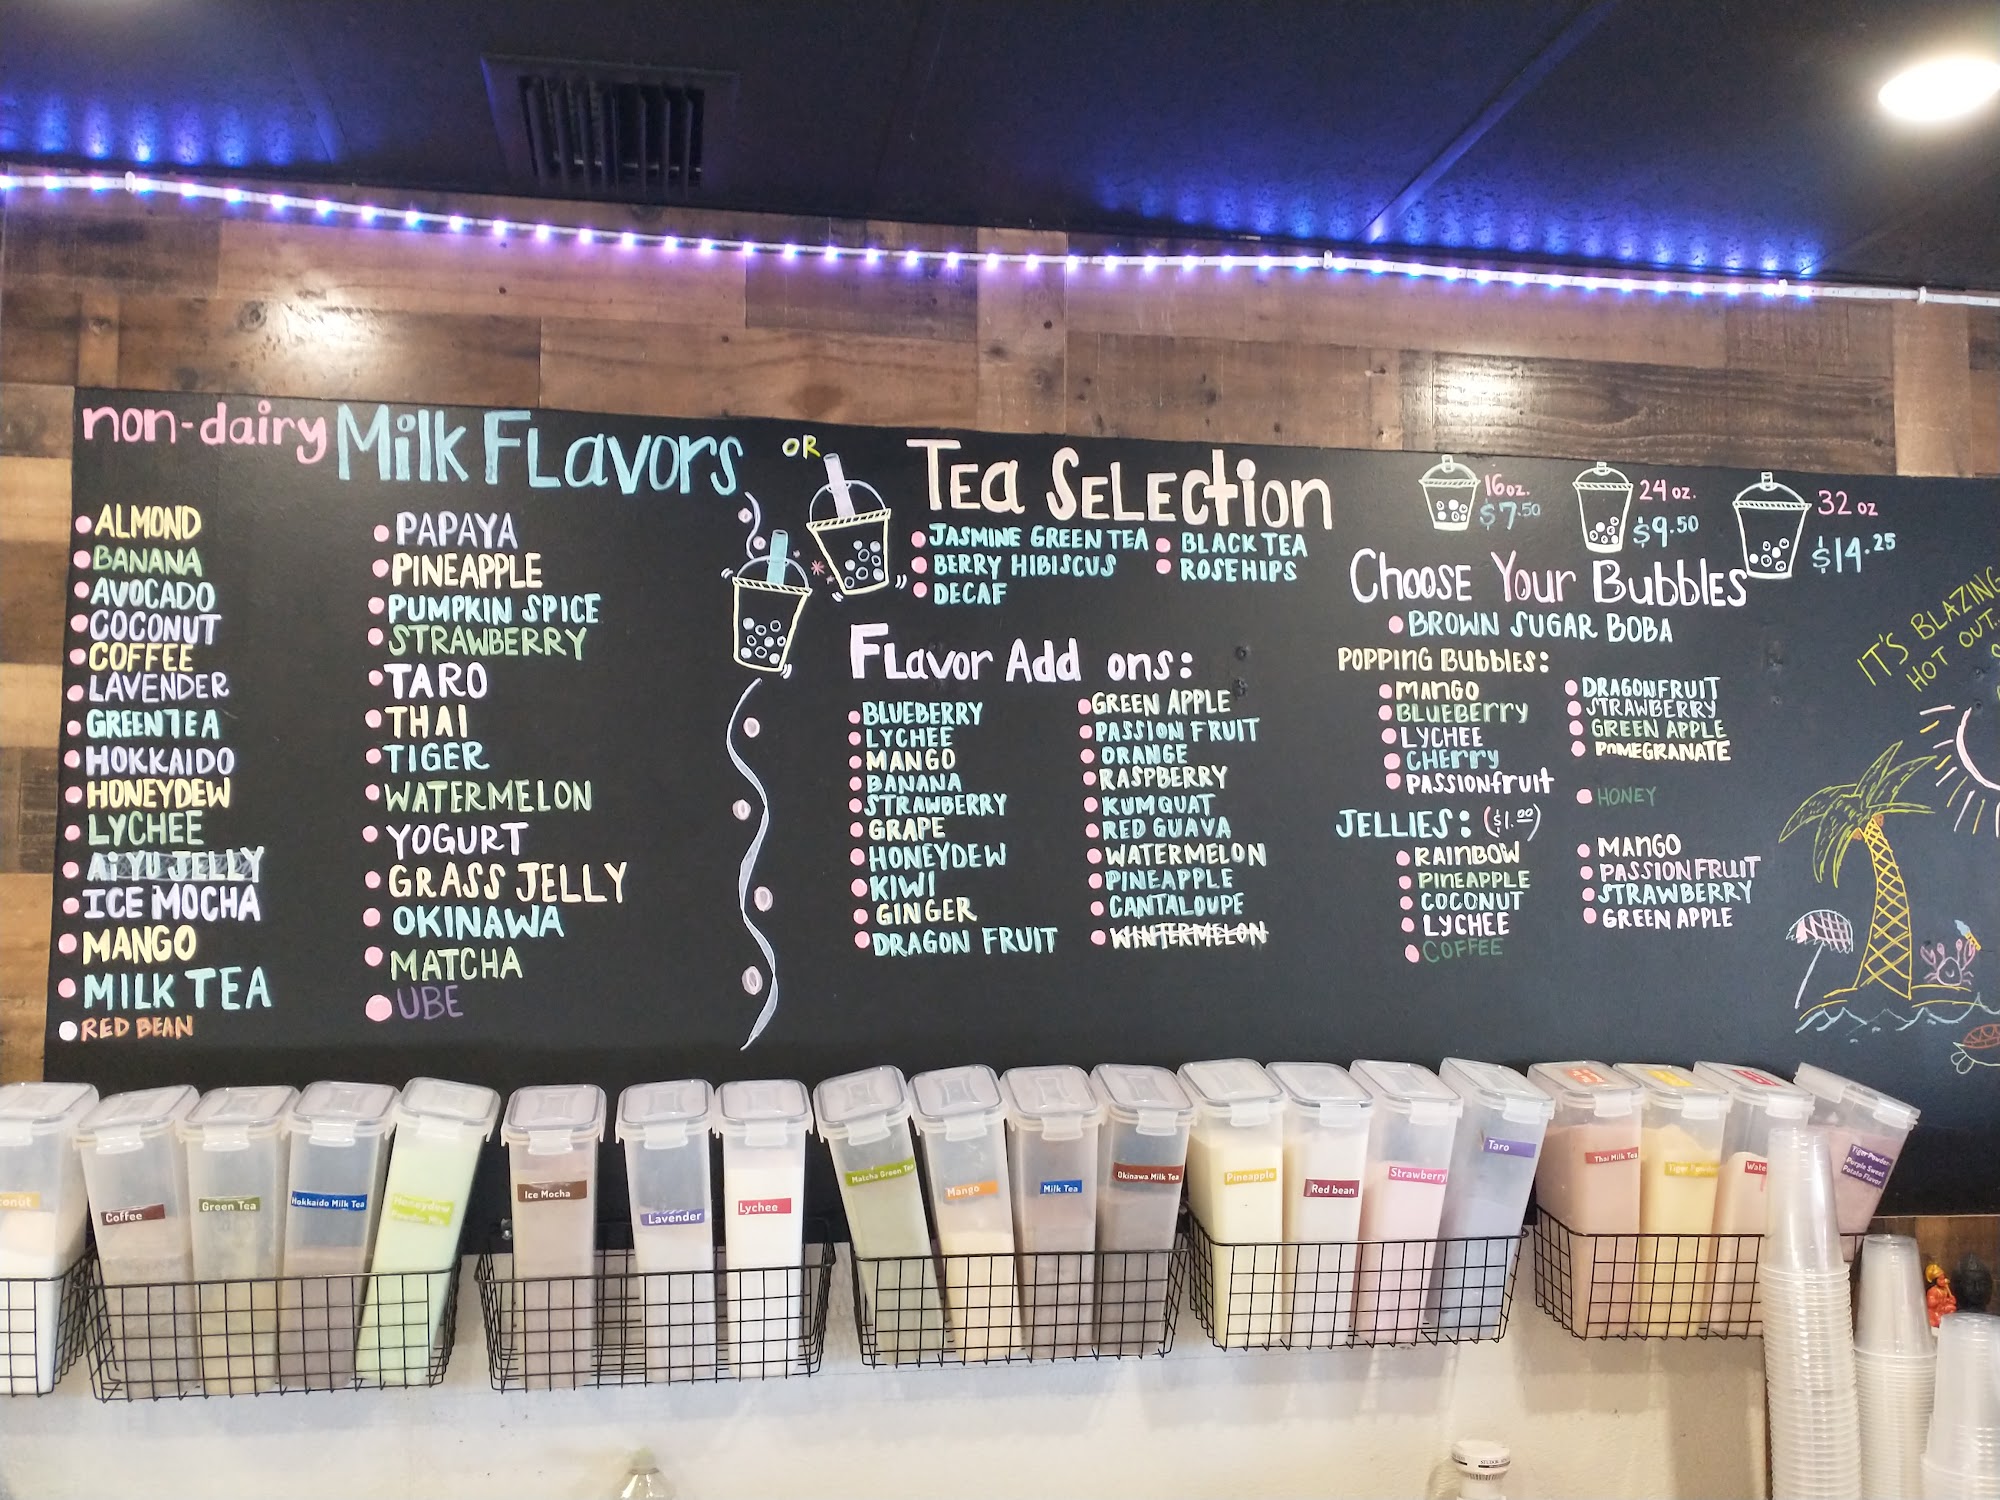 non-dairy Milk Flavors
ALMOND
BANANA
AVOCADO
COCONUT
COFFEE
LAVENDER
GREEN TEA
HOKKAIDO
HONEYDEW
LYCHEE
Ai YU JELLY
ICE MOCHA
MANGO
MILK TEA
RED BEAN
PAPAYA
PINEAPPLE
PUMPKIN SPICE
STRAWBERRY
TARO
THAI
TIGER
WATERMELON
YOGURT
GRASS JELLY
OKINAWA
MATCHA
UBE
OR
TEa SELECtion
JASMINE GREEN TEA
BERRY HIBISCUS
DECAF
BLACK TEA
ROSEHIPS
FLavor Add ons:
BLUEBERRY
LYCHEE
MANGO
BANANA
STRAWBERRY
GRAPE
HONEYDEW
KIWI
GINGER
DRAGON FRUIT
GREEN APPLE
PASSION FRUIT
ORANGE
RASPBERRY
KUMQUAT
RED GUAVA
WATERMELON
PINEAPPLE
CANTALOUPE
WINTERMELON
16oz.
$7.50
24 oz.
$9.50
32 oz
$14.25
Choose Your Bubbles
BROWN SUGAR BOBA
POPPING BUBBLES:
MANGO
BLUEBERRY
LYCHEE
CHERRY
PASSIONfruit
DRAGONFRUIT
STRAWBERRY
GREEN APPLE
POMEGRANATE
HONEY
JELLIES: ($1.00)
RAINBOW
PINEAPPLE
COCONUT
LYCHEE
COFFEE
MANGO
PASSION FRUIT
STRAWBERRY
GREEN APPLE
IT'S BLAZING
HOT OUT...
conut
Coffee
Green Tea
Hokkaido Milk Tea
Honeydew
Powder Mix
Ice Mocha
Lavender
Lychee
Matcha Green Tea
Mango
Milk Tea
Okinawa Milk Tea
Pineapple
Red bean
Strawberry
Taro
Thai Milk Tea
Tiger Powder
Wate
Tiger Powder
Purple Sweet
Potato Flavor